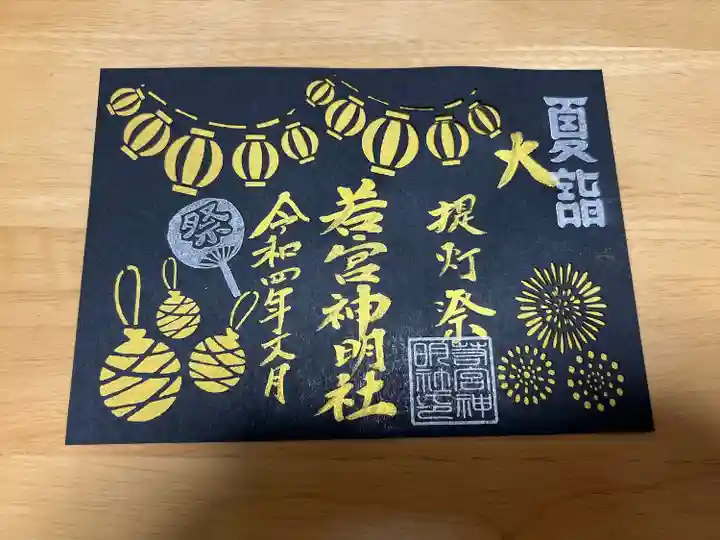 夏詣
大
提灯祭
若宮神明社
若宮神
明社之印
令和四年文月
祭